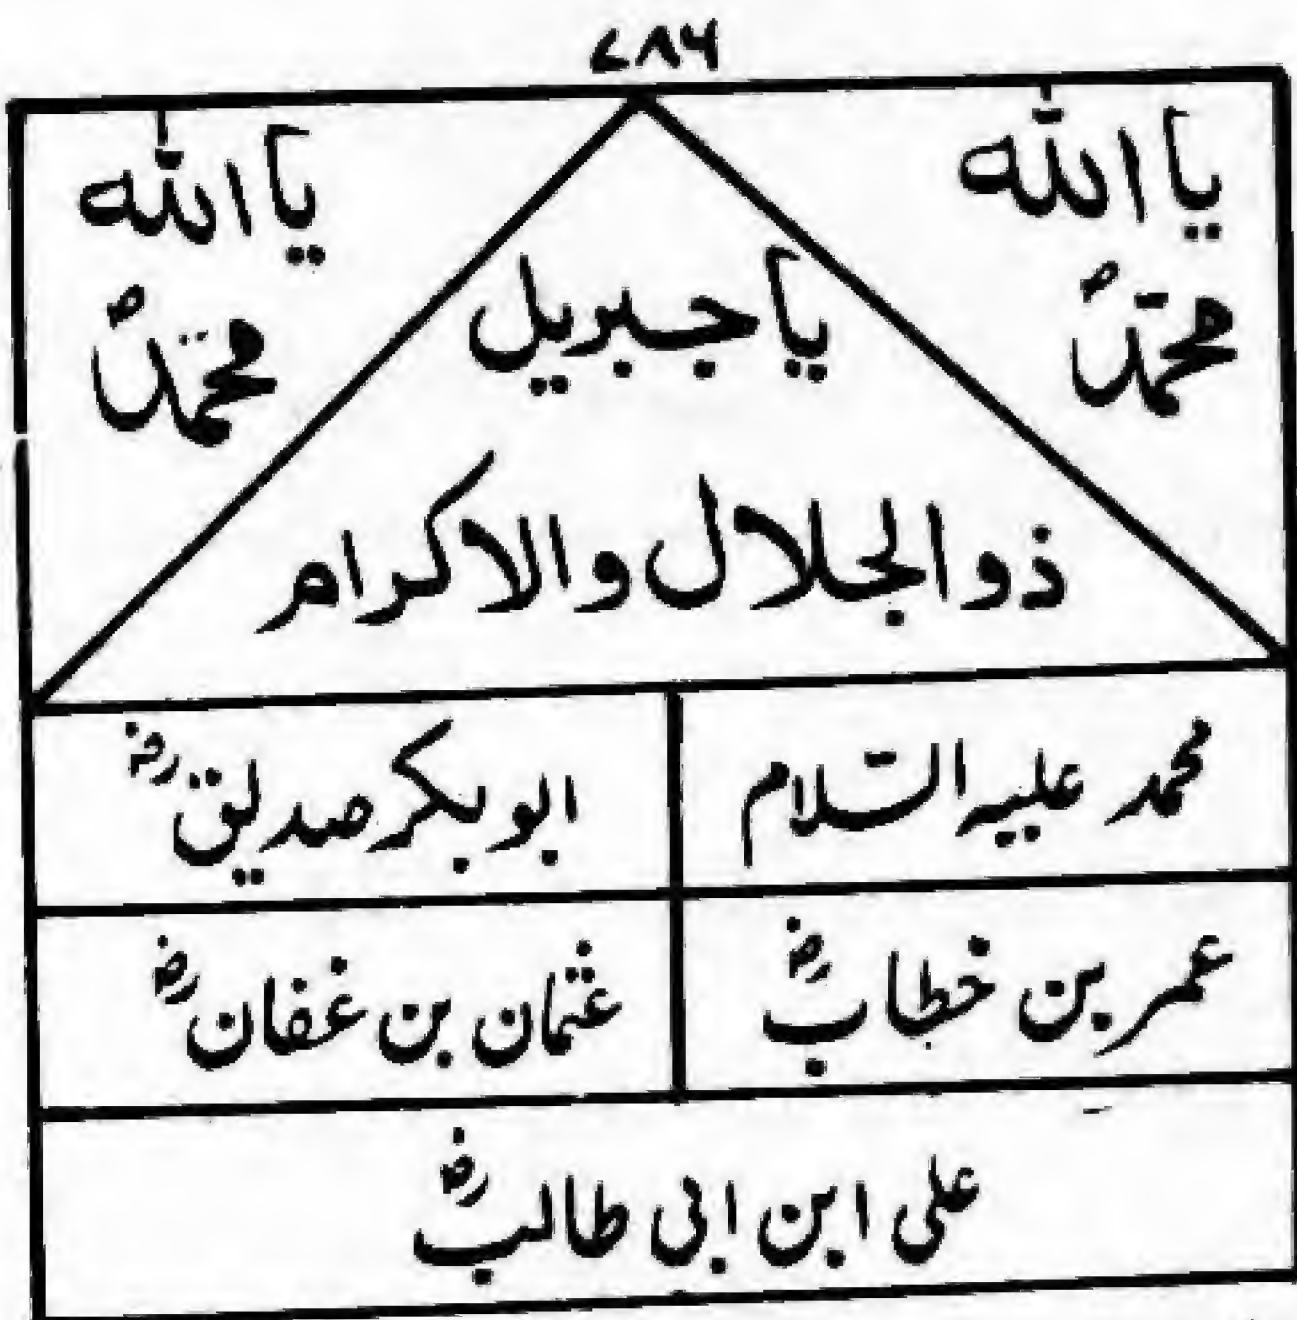 ۷۸۶
یا اللہ
محمدؐ
یا اللہ
محمدؐ
یا جبریل
ذوالجلال والاکرام
محمد علیہ السّلام
ابوبکر صدیقؓ
عمر بن خطابؓ
عثمان بن غفانؓ
علی ابن ابی طالبؓ